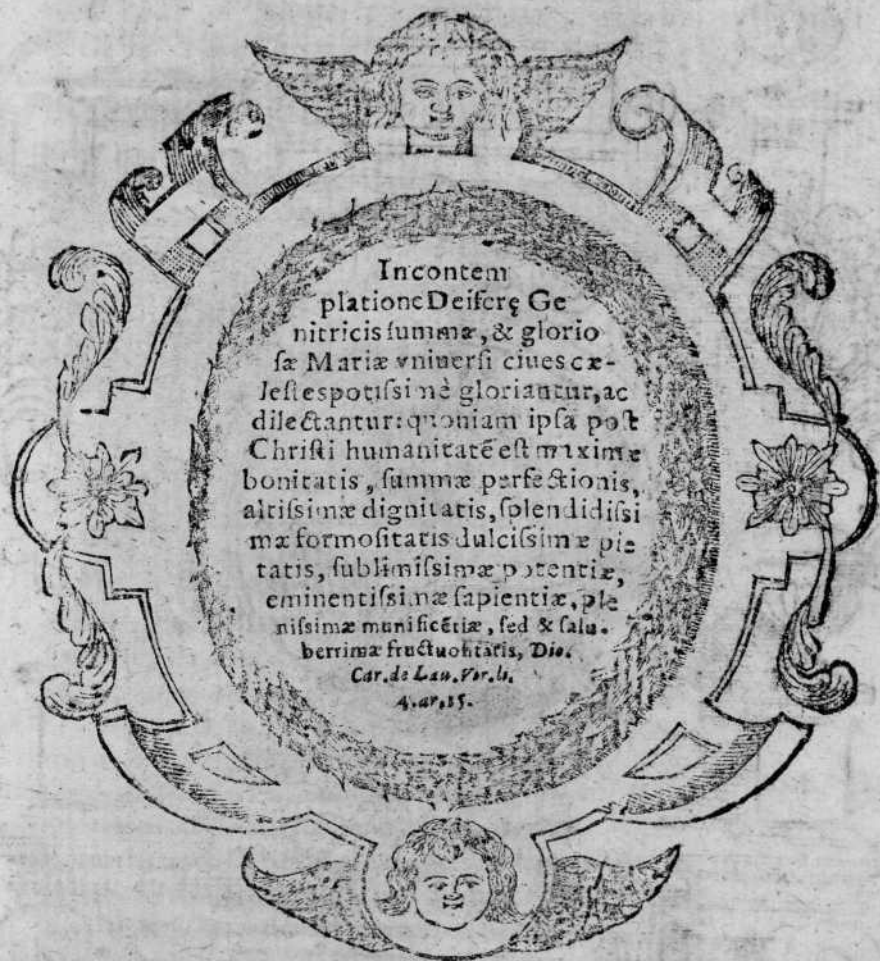 Incontem
platione Deiferę Ge
nitricis summæ, & glorio
sæ Mariæ vniuersi ciues cæ-
lestes potissimè gloriantur, ac
dilectantur: quoniam ipsa post
Christi humanitatē est maximæ
bonitatis, summæ perfectionis,
altissimæ dignitatis, splendidissi
mæ formositatis dulcissimæ pie
tatis, sublimissimæ potentiæ,
eminentissimæ sapientiæ, ple
nissimæ munificētiæ, sed & salu.
berrimæ fructuositatis, Dio.
Car. de Lau. Vir. li.
4. ar. 15.